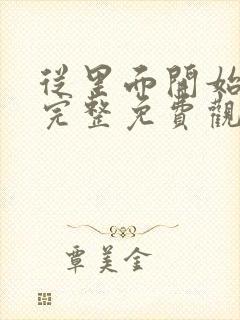 從里而開始
完整免費觀
覃美金